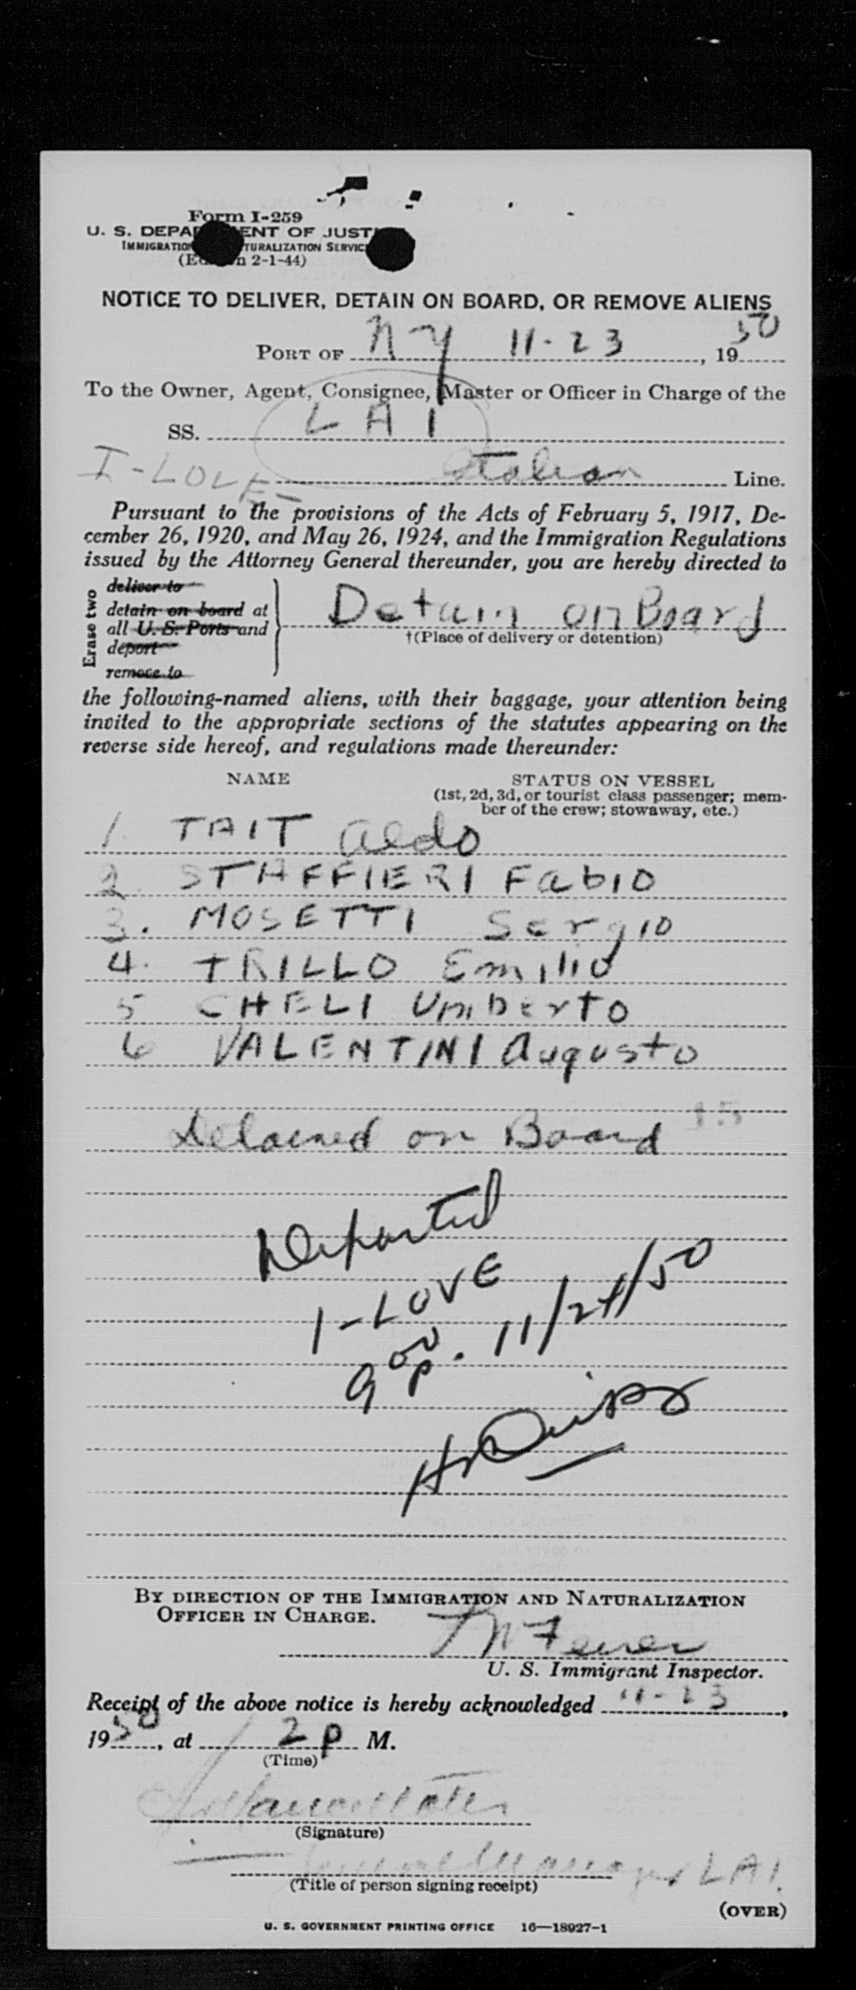 Form I-259
U. S. DEPARTMENT OF JUSTICE
IMMIGRATION NATURALIZATION SERVICE
(Edition 2-1-44)
NOTICE TO DELIVER, DETAIN ON BOARD, OR REMOVE ALIENS
PORT OF N-Y 11-23, 1950
To the Owner, Agent, Consignee, Master or Officer in Charge of the
SS. LAI
I-LOVE- Italian Line.
Pursuant to the provisions of the Acts of February 5, 1917, De-
cember 26, 1920, and May 26, 1924, and the Immigration Regulations
issued by the Attorney General thereunder, you are hereby directed to
Erase two
deliver to
detain on board at
all U. S. Ports and
deport
remove to
Detain on Board
†(Place of delivery or detention)
the following-named aliens, with their baggage, your attention being
invited to the appropriate sections of the statutes appearing on the
reverse side hereof, and regulations made thereunder:
NAME STATUS ON VESSEL
(1st, 2d, 3d, or tourist class passenger; mem-
ber of the crew; stowaway, etc.)
1. TAIT Aldo
2 STAFFIERI Fabio
3. MOSETTI Sergio
4. TRILLO Emilio
5 CHELI Umberto
6 VALENTINI Augusto
Detained on Board
Departed
I-LOVE
9 00 p. 11/24/50
BY DIRECTION OF THE IMMIGRATION AND NATURALIZATION
OFFICER IN CHARGE.
U. S. Immigrant Inspector.
Receipt of the above notice is hereby acknowledged 11-23,
1950, at 2 P M.
(Time)
(Signature)
Manager LAI.
(Title of person signing receipt)
(OVER)
U. S. GOVERNMENT PRINTING OFFICE 16—18927-1